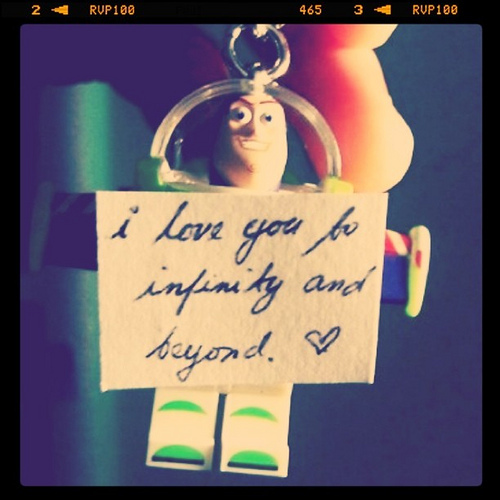 2 RVP100 465 3 RVP100
i love you to
infinity and
beyond. ♡